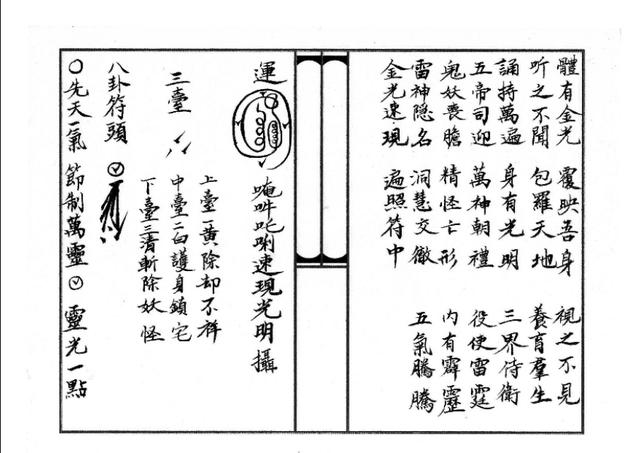 體有金光 覆映吾身 視之不見
听之不聞 包羅天地 養育羣生
誦持萬遍 身有光明 三界侍衛
五帝司迎 萬神朝禮 役使雷霆
鬼妖喪膽 精怪亡形 內有霹靂
雷神隱名 洞慧交徹 五氣騰騰
金光速現 遍照符中
運 唵吽吒唎速現光明攝
三臺
上臺一黃除却不祥
中臺二白護身鎮宅
下臺三清斬除妖怪
八卦符頭
先天一氣 節制萬靈 靈光一點